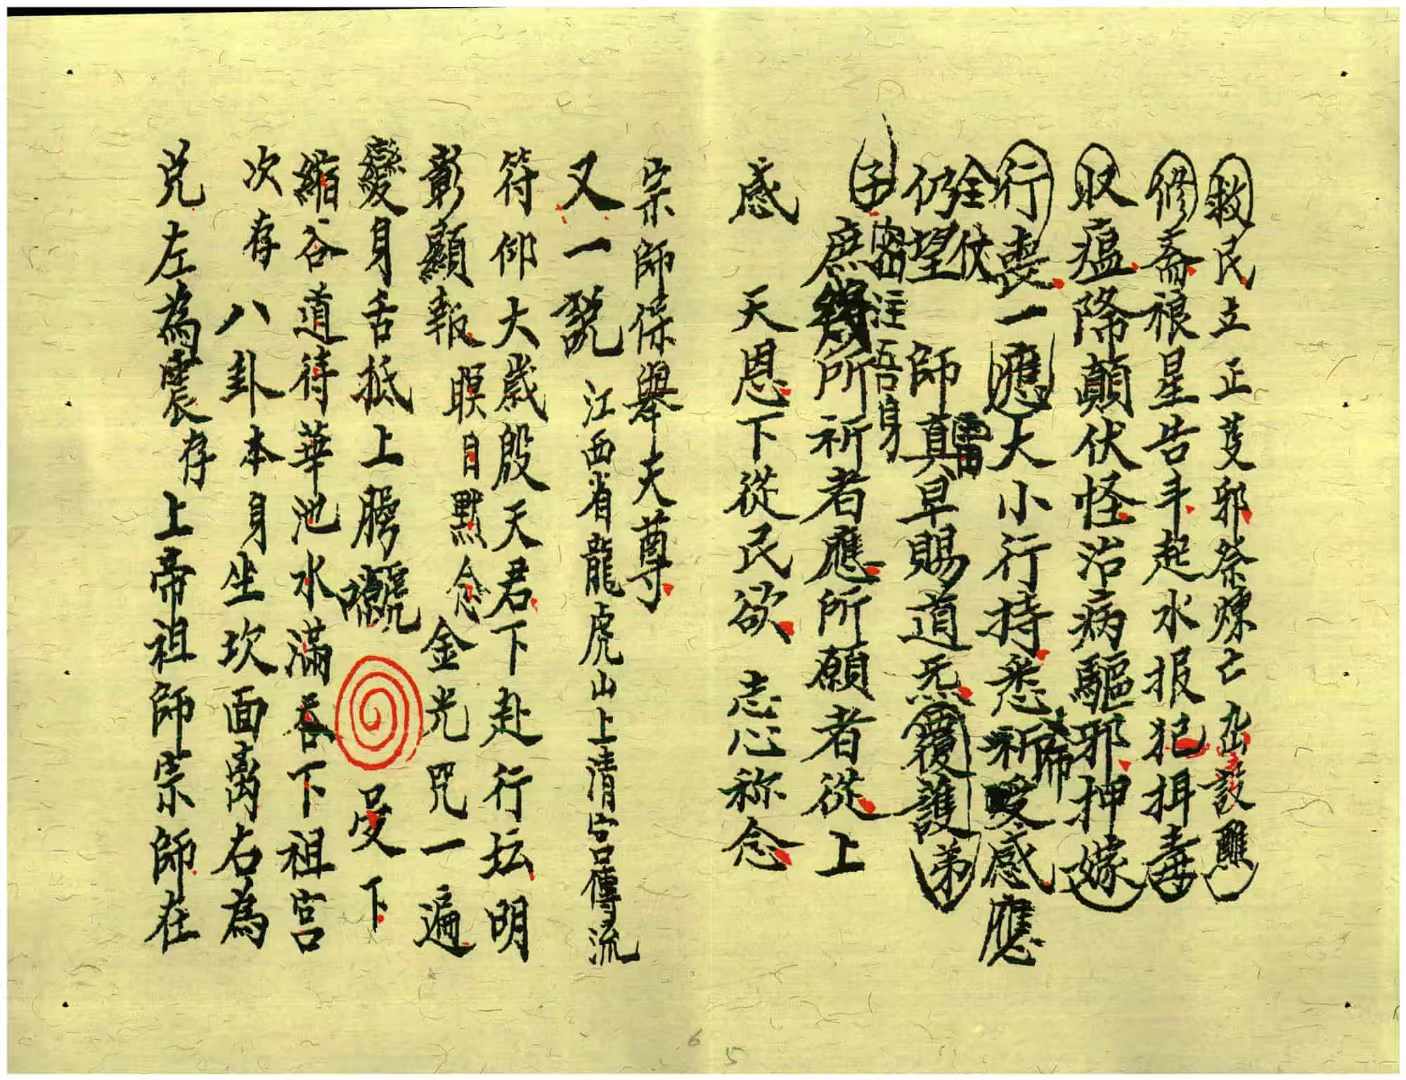 救民立正芟邪祭煉亡出設醮
修齋禳星告斗起水报犯揖毒
収瘟降顛伏怪治病驅邪押嫁
行喪一應大小行持悉祈受感應
全伏
雷
仍望師真早賜道炁覆護弟
子
密注吾身
庶所祈者應所願者從上
感天恩下從民欲志心称念
宗師保舉天尊
又一說江西省龍虎山上清宮傳流
符仰大歲殷天君下赴行坛明
彰顯報瞑目默念金光咒一遍
變身舌抵上腭受下
縮谷道待華池水滿吞下祖宮
次存八卦本身坐坎面离右為
兑左為震存上帝祖師宗師在
6
5